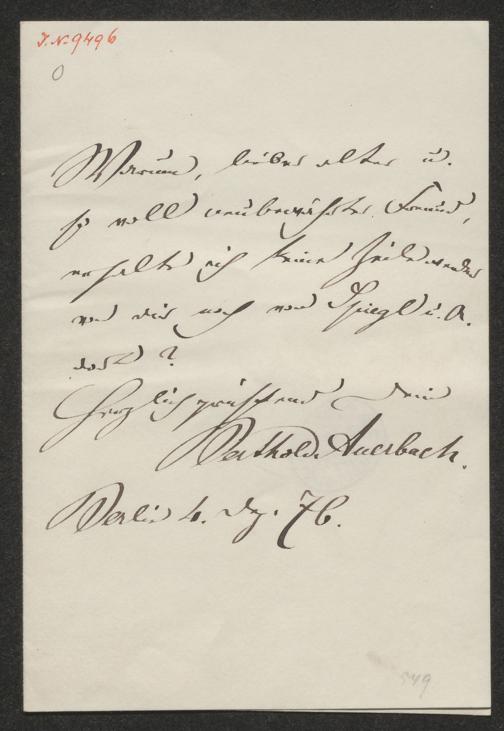 J. N. 9496
Warum, lieber alter u.
so voll neubewährter Freund,
erhalte ich keine Zeile weder
von dir noch von Spiegl u. A.
dort?
Herzlich grüßend Dein
Berthold Auerbach.
Berlin 4. Dez. 76.
549